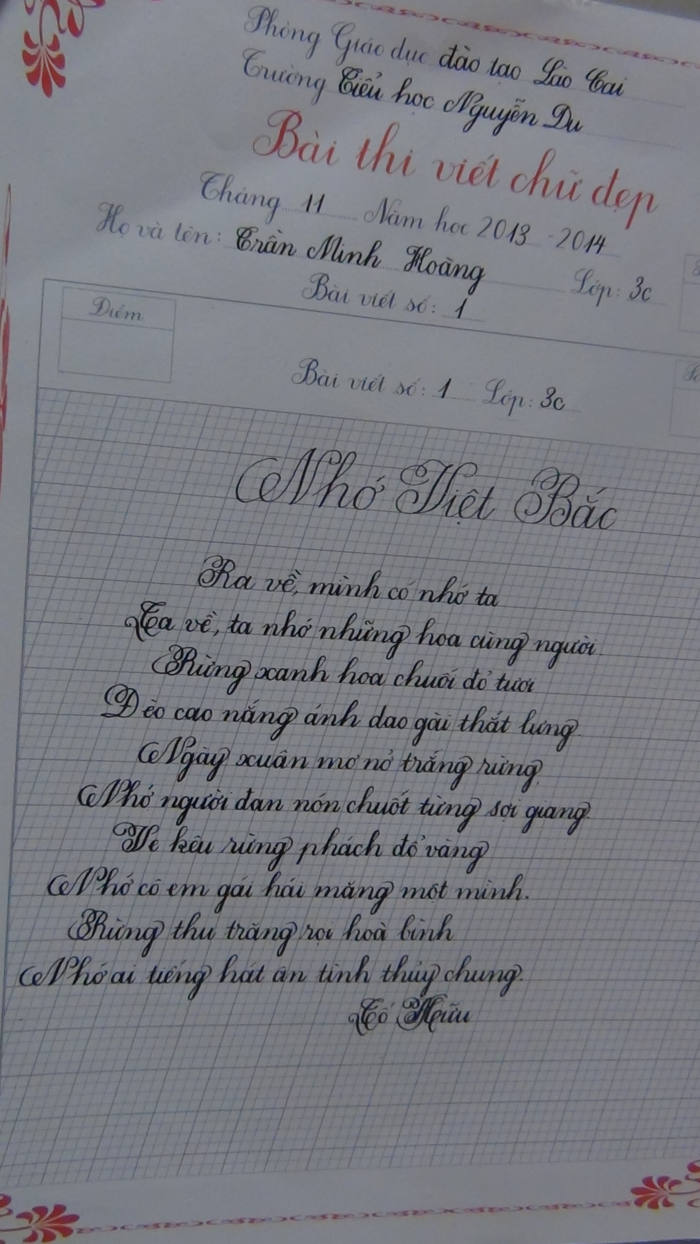 Phòng Giáo dục đào tạo Lào Cai
Trường Tiểu học Nguyễn Du
Bài thi viết chữ đẹp
Tháng 11 Năm học 2013 - 2014
Họ và tên: Trần Minh Hoàng Lớp: 3c
Bài viết số: 1
Điểm
Bài viết số: 1 Lớp: 3c
Nhớ Việt Bắc
Ra về, mình có nhớ ta
Ta về, ta nhớ những hoa cùng người
Rừng xanh hoa chuối đỏ tươi
Đèo cao nắng ánh dao gài thắt lưng
Ngày xuân mơ nở trắng rừng
Nhớ người đan nón chuốt từng sợi giang
Ve kêu rừng phách đổ vàng
Nhớ cô em gái hái măng một mình.
Rừng thu trăng rọi hoà bình
Nhớ ai tiếng hát ân tình thủy chung.
Tố Hữu